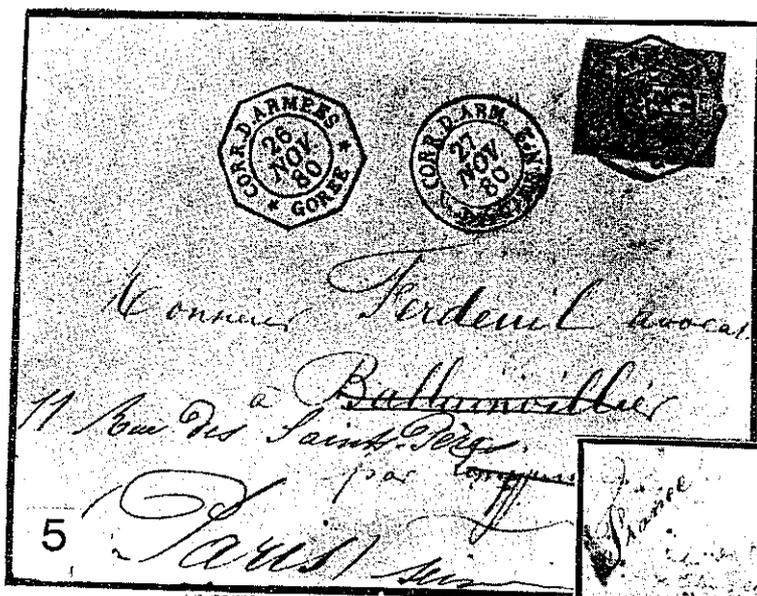 CORR.D.ARMEES
GOREE
26
NOV
80
CORR.D.ARM.
27
NOV
80
Monsieur Ferdeuil avocat
à Ballainvillier
11 Rue des Saints Pères
par
Paris
5
France